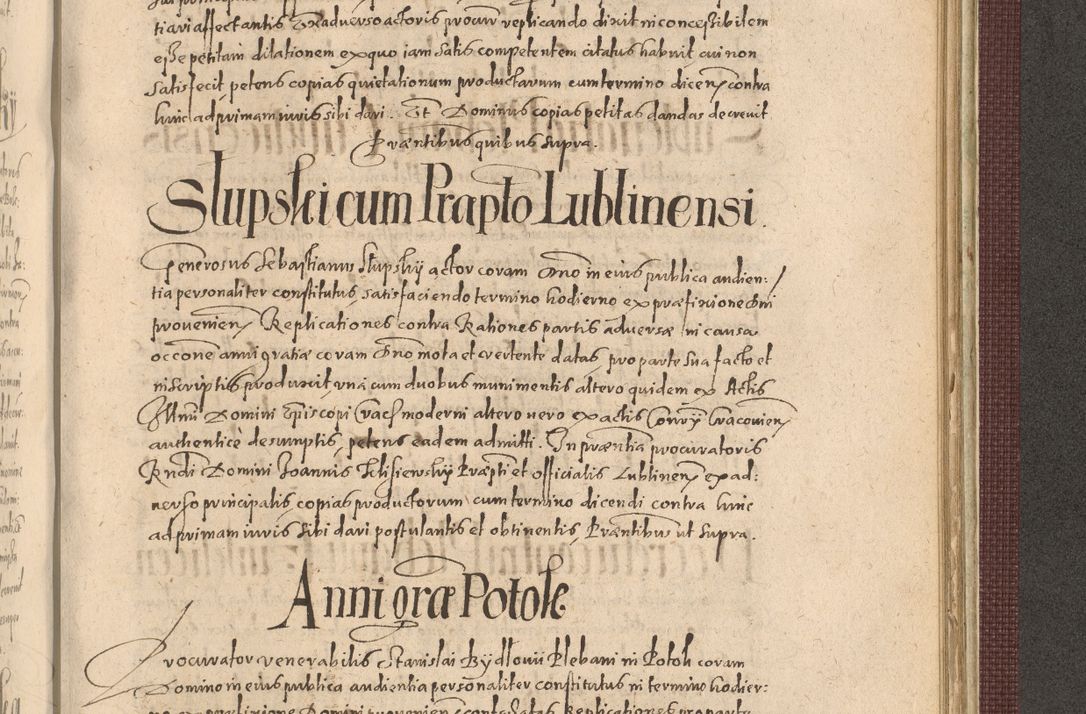 tiavi affectantis Ex adverso actoris procur replicando dixit inconcessibilem
esse petitam dilationem ex quo iam satis competentem citatus habuit cui non
satisfecit petens copias quietationum productarum cum termino dicen contra
hinc ad primam iuris sibi dari. Et Dominus copias petitas dandas decrevit
Præntibus quibus supra.
Slupski cum Præpto Lublinensi.
Generosus Sebastianus Slupskij actor coram Dno in eius publica audien:
tia personaliter constitutus, satisfaciendo termino hodierno ex præfixione Dni
prouenien Replicationes contra Rationes partis adversæ in causa
occone anni gratiæ coram Dno mota et vertente datas, pro parte sua facto et
in scriptis produxit, vna cum duobus munimentis altero quidem ex Actis
Illmi Domini Episcopi Crac moderni altero uero ex actis Conrÿ Cracouien
authentice desumptis, petens eadem admitti. In præntia procuratoris
Rndi Domini Joannis Præpti et officialis Lublinen ex ad:
uerso principalis, copias productorum cum termino dicendi contra hinc
ad primam iuris sibi dari postulantis et obtinentis, Præntibus ut supra.
Anni græ Potok
Procurator venerabilis Stanislai Bydlouii Plebani in Potok coram
Domino in eius publica audientia personaliter constitutus in termino hodier: